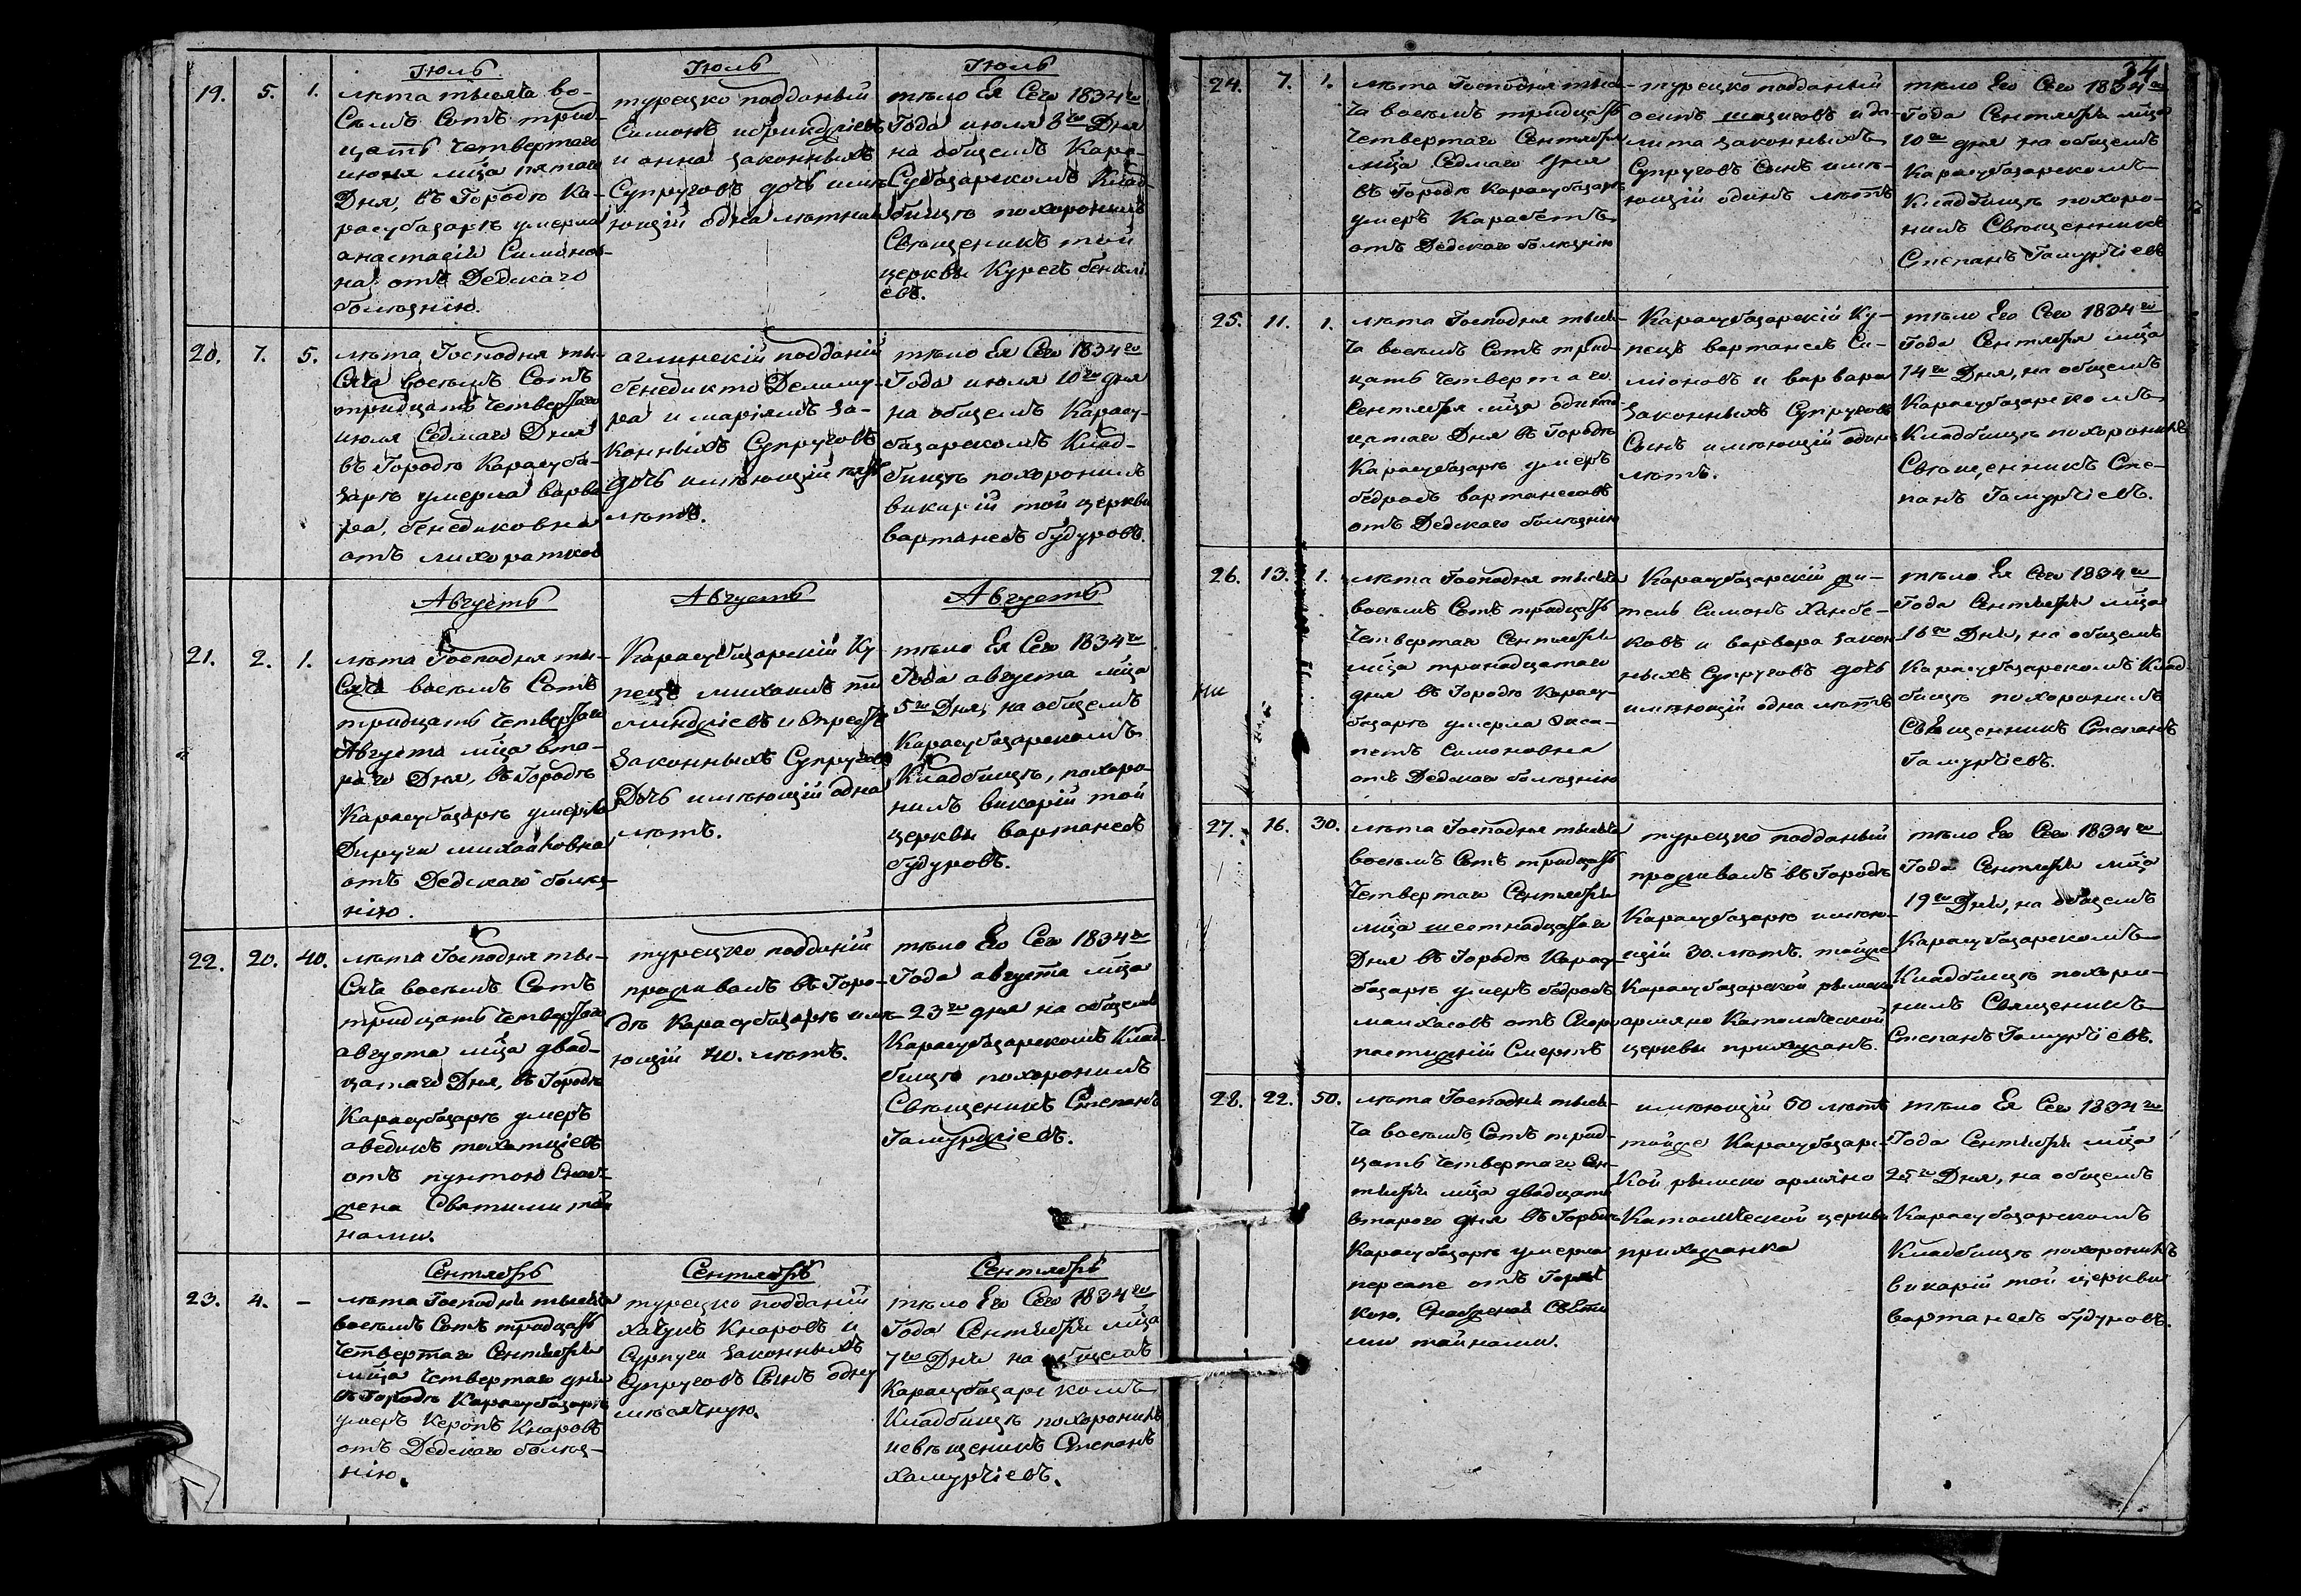 Июль
Июль
Июль
19. 5. 1.
лѣта тысяча во-
Семъ Сотъ трид-
цать четвертаго
июля мца пятаго
Дня, въ Городѣ Ка-
расубазарѣ умерла
анастасія Симонов-
на отъ Дедскаго
болѣзнію.
турецко подданый
Симонъ
и анна законныхъ
Супруговъ дочь имѣ
ющій одна лѣтная
тѣло Ея Сего 1834го
Года июля 8го Дня
на общемъ Кара-
Субазарскомъ Клад-
бищѣ похоронилъ
Священикъ той
церквы
20. 7. 5.
лѣта Господня ты-
Сяча восемъ Сотъ
тридцать четвертаго
июля Седмаго Дня
въ Городѣ Карасуба-
зарѣ умерла варва
ра, бенедиковна
отъ лихораткой
аглинскій подданій
бенедикто Делиму-
ра и маріямъ за-
конныхъ Супруговъ
дочь имѣющій пять
лѣтъ.
тѣло Ея Сего 1834го
Года июля 10го дня
на общемъ Карасу-
базарскомъ Клад-
бищѣ похоронилъ
викарій той церквы
вартанесъ будуровъ.
Августъ
Августъ
Августъ
21. 2. 1.
лѣта Господня ты-
Сяча восемъ Сотъ
тридцать четвертаго
Августа мца вта-
раго Дня, въ Городѣ
Карасубазарѣ умерла
Дируги михайловна
отъ Дедскаго болѣз-
нію.
Карасубазарскій Ку
пецъ михаилъ
законныхъ Супруговъ
Дочь имѣющій одна
лѣтъ.
тѣло Ея Сего 1834го
Года августа мца
5го Дня, на общемъ
Карасубазарскомъ
Кладбищѣ, похоро-
нилъ викарій той
церквы вартанесъ
будуровъ.
22. 20. 40.
лѣта Господня ты-
Сяча восемъ Сотъ
тридцать четвертаго
августа мца двад-
цатаго Дня, въ Городѣ
Карасубазарѣ умеръ
аведикъ
отъ пунтою Снаб-
жена Святыми тай
нами.
турецко подданій
проживалъ въ Горо-
дѣ Карасубазарѣ имѣ
ющій 40. лѣтъ.
тѣло Его Сего 1834го
Года августа мца
23го дня на общемъ
Карасубазарскомъ Клад-
бищѣ похоронилъ
Священикъ Степанъ
Гамурджіевъ.
Сентябрь
Сентябрь
Сентябрь
23. 4. –
лѣта Господня тысяча
восемъ Сотъ тридцать
четвертаго Сентября
мца четвертаго дня
въ Городѣ Карасубазарѣ
умеръ Керопъ Кнаровъ
отъ Дедскаго болѣз-
нію.
турецко подданій
хачикъ Кнаровъ и
Сурпуги законныхъ
Супруговъ Сынъ одну
мѣсячную.
тѣло Его Сего 1834го
Года Сентября мца
7го Дня на общемъ
Карасубазарскомъ
Кладбищѣ похоронилъ
Степанъ
хамурчіевъ.
34
24. 7. 1.
лѣта Господня тыся-
ча восемъ тридцать
четвертаго Сентября
мца Седмаго Дня
въ Городѣ Карасубазарѣ
умеръ Карабетъ
отъ Дедскаго болѣзнію
турецко подданый
осипъ и да-
лита законныхъ
Супруговъ Сынъ имѣ-
ющій одинъ лѣтъ
тѣло Его Сего 1834го
Года Сентября мца
10го дня на общемъ
Карасубазарскомъ
Кладбищѣ похоро-
нилъ Священникъ
Степанъ Гамурчіевъ
25. 11. 1.
лѣта Господня тыся-
ча восемъ Сотъ трид-
цать четвертаго
Сентября мца одинад-
цатаго Дня въ Городѣ
Карасубазарѣ умеръ
бедросъ вартанесовъ
отъ Дедскаго болѣзнію
Карасубазарскій Ку-
пецъ вартанесъ Си-
моновъ и варвара
законныхъ Супруговъ
Сынъ имѣющій одинъ
лѣтъ.
тѣло Его Сего 1834го
Года Сентября мца
14го Дня, на общемъ
Карасубазарскомъ
Кладбищѣ похоронилъ
Священникъ Сте-
панъ Гамурчіевъ.
26. 13. 1.
лѣта Господня тысяча
восемъ Сотъ тридцать
четвертаго Сентября
мца тринадцатаго
дня въ Городѣ Карасу-
базарѣ умерла
Симоновна
отъ Дедскаго болѣзнію
Карасубазарскій жи-
тель Симонъ Ханбе-
ковъ и варвара закон
ныхъ Супруговъ дочь
имѣющій одна лѣтъ
тѣло Ея Сего 1834го
Года Сентября мца
16го Дня, на общемъ
Карасубазарскомъ Клад
бищѣ похоронилъ
Священникъ Степанъ
Гамурчіевъ.
27. 16. 30.
лѣта Господня тысяча
восемъ Сотъ тридцать
четвертаго Сентября
мца шестнадцатаго
Дня въ Городѣ Карасу-
базарѣ умеръ бедросъ
отъ Скоро
постижній Смертъ
турецко подданый
проживалъ въ Городѣ
Карасубазарѣ имѣю-
щій 30. лѣтъ. тойже
Карасубазарской рымско
армяно Католической
церквы прихожанъ.
тѣло Его Сего 1834го
Года Сентября мца
19го Дня, на общемъ
Карасубазарскомъ
Кладбищѣ похоро-
нилъ Священикъ
Степанъ Гамурчіевъ.
28. 22. 50.
лѣта Господня тыся-
ча восемъ Сотъ трид-
цать четвертаго Сен-
тября мца двадцать
втараго дня въ Городѣ
Карасубазарѣ умерла
персапе отъ Горяч
кою. Снабженна Святы
ми тайнами.
имѣющій 50 лѣтъ
тойже Карасубазарс-
кой рымско армяно
Католической церквы
прихожанка
тѣло Ея Сего 1834го
Года Сентября мца
25го Дня, на общемъ
Карасубазарскомъ
Кладбищѣ похоронилъ
викарій той церквы
вартанесъ будуровъ.